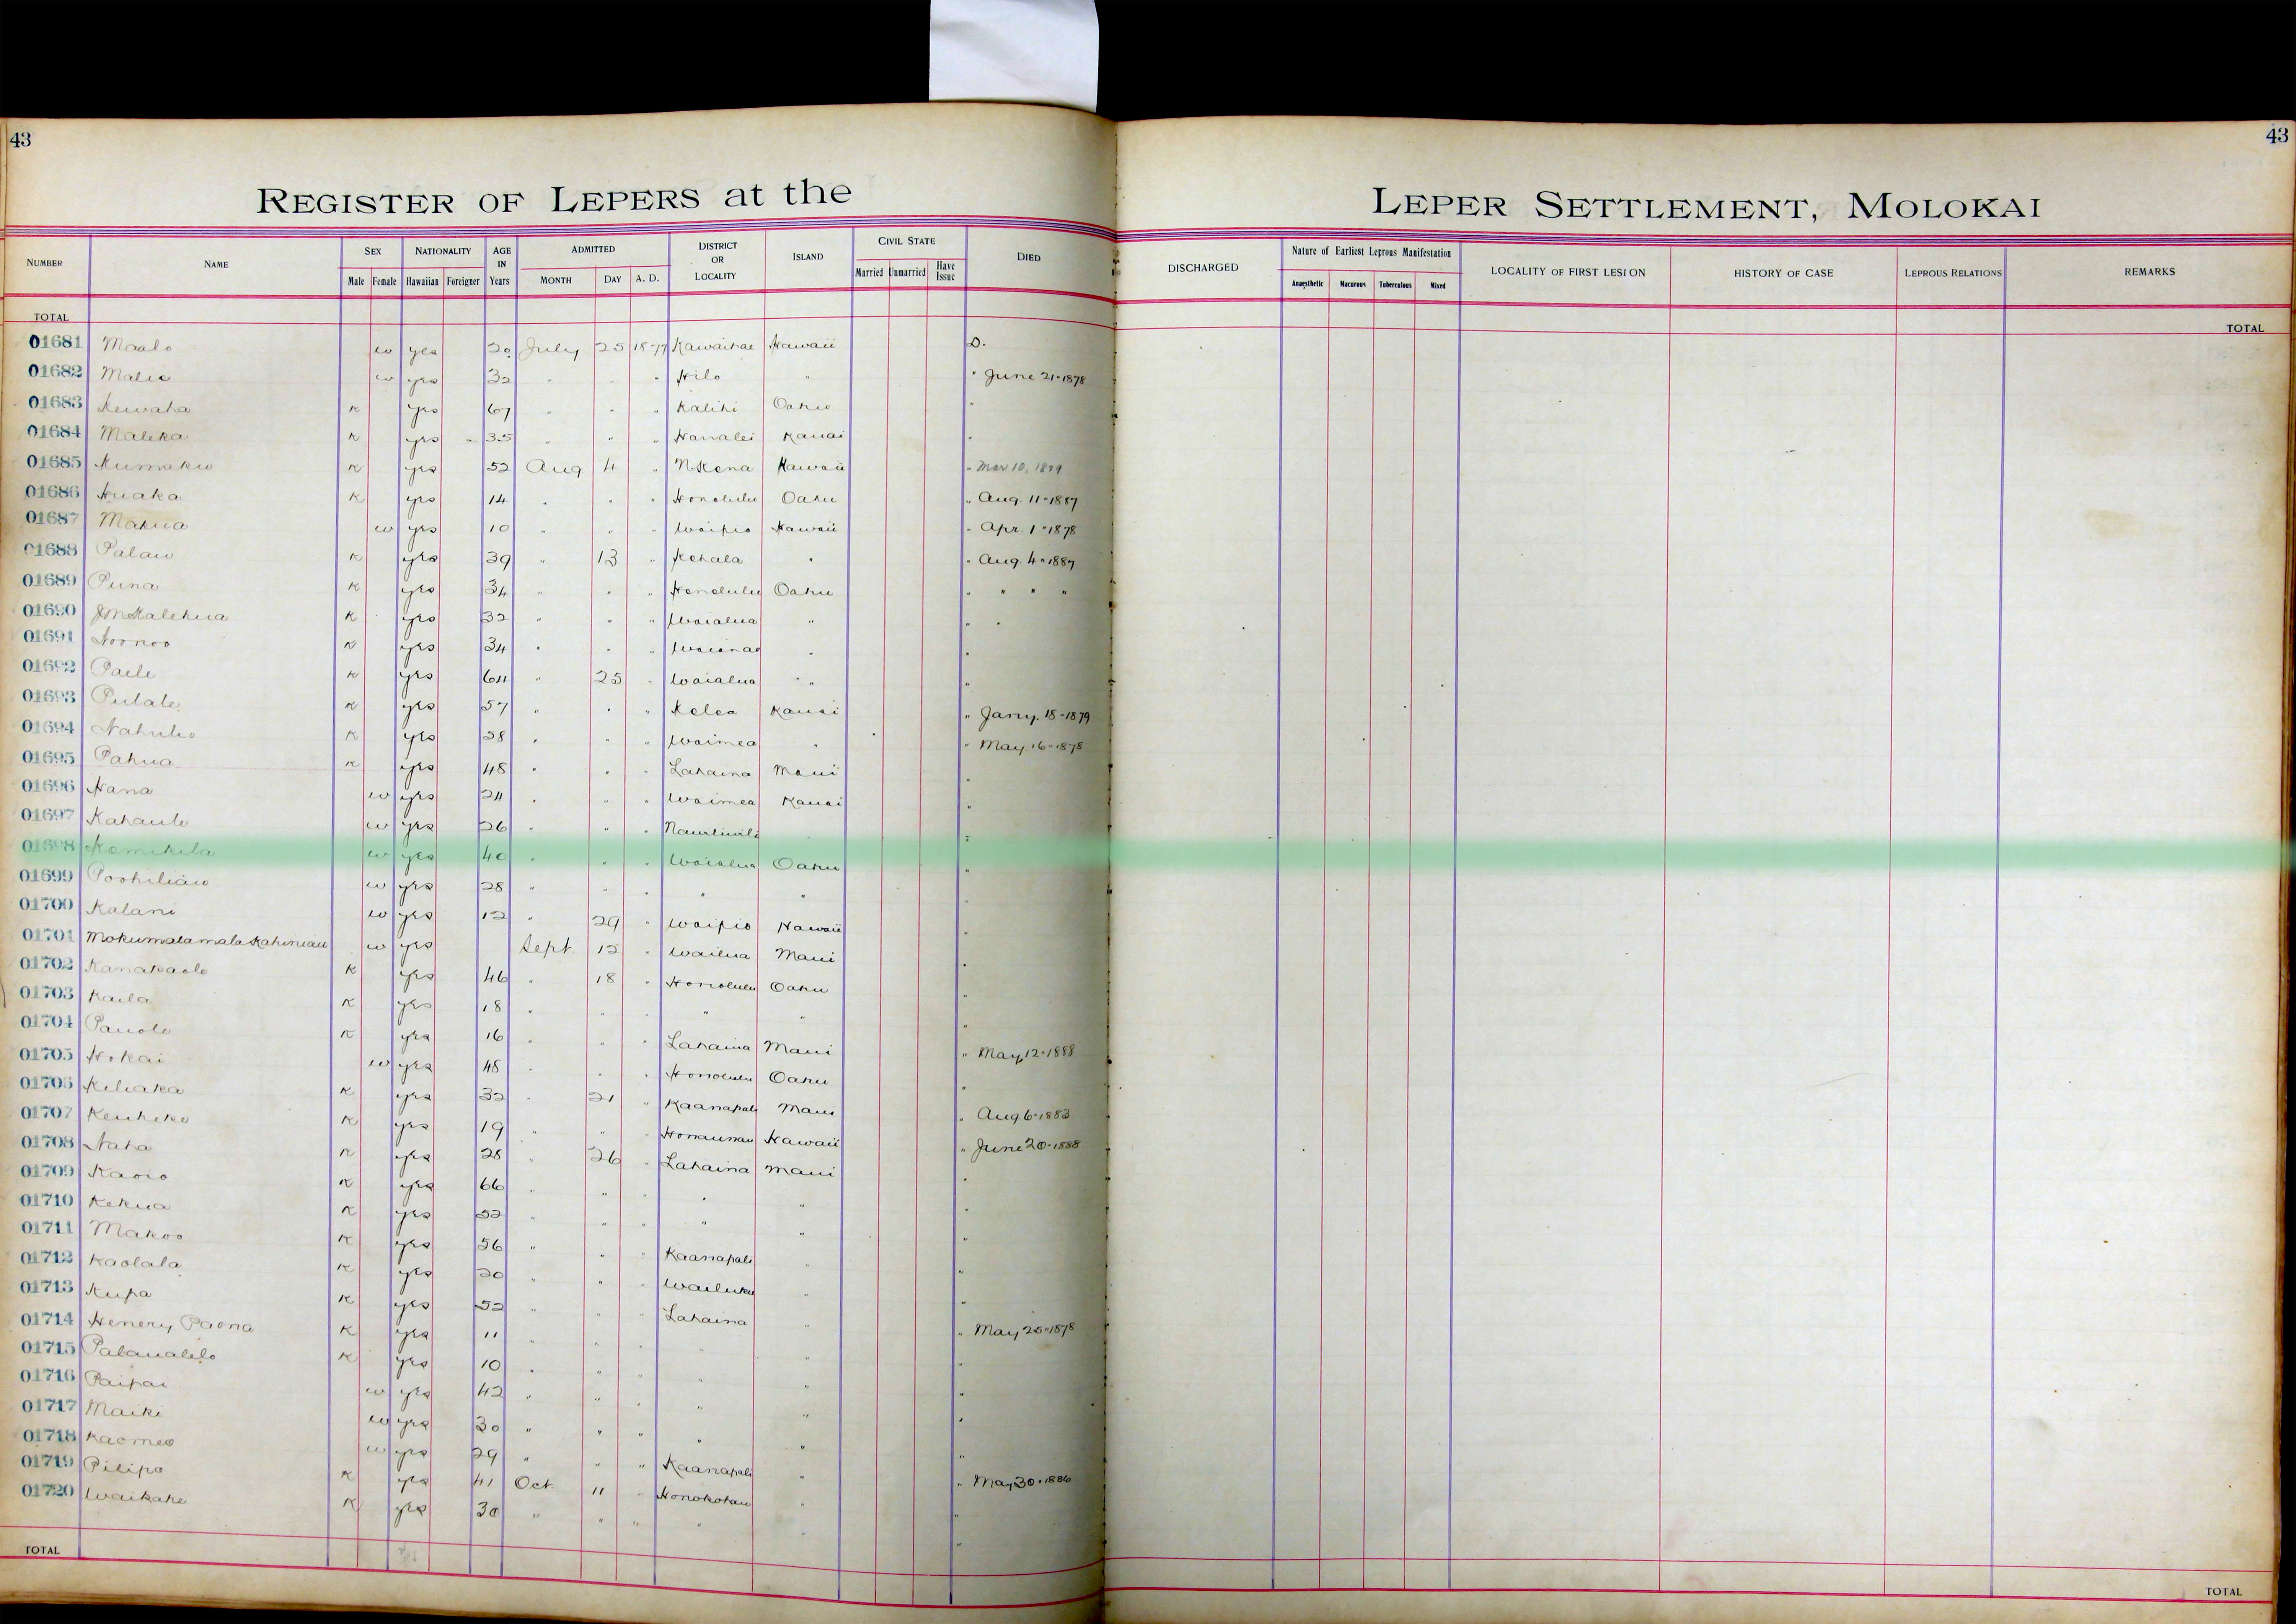 43
43
REGISTER OF LEPERS at the
LEPER SETTLEMENT, MOLOKAI
NUMBER NAME SEX NATIONALITY AGE IN Years ADMITTED DISTRICT OR LOCALITY ISLAND CIVIL STATE DIED DISCHARGED Nature of Earliest Leprous Manifestation LOCALITY OF FIRST LESION HISTORY OF CASE LEPROUS RELATIONS REMARKS
Male Female Hawaiian Foreigner MONTH DAY A. D. Married Unmarried Have Issue Anaesthetic Macurous Tuberculous Mixed
TOTAL TOTAL
01681 Maalo w yes 20 July 25 1877 Kawaihae Hawaii D.
01682 Malie w yes 32 " " " Hilo " " June 21-1878
01683 Kewaha K yes 67 " " " Kalihi Oahu "
01684 Maleka K yes 35 " " " Hanalei Kauai "
01685 Kumaku K yes 52 Aug 4 " N Kona Hawaii " Mar 10, 1879
01686 Huaka K yes 14 " " " Honolulu Oahu " Aug. 11-1887
01687 Mahua w yes 10 " " " Waipio Hawaii " Apr. 1-1878
01688 Palau K yes 39 " 13 " Kohala " " Aug. 4-1887
01689 Puna K yes 34 " " " Honolulu Oahu " " " "
01690 J M Kalehua K yes 32 " " " Waialua " " "
01691 Noonoo K yes 34 " " " Waianae " "
01692 Paele K yes 64 " 25 " Waialua " " "
01693 Pulale K yes 57 " " " Kolea Kauai " Jany. 18-1879
01694 Nahulio K yes 28 " " " Waimea " " May 16-1878
01695 Pahua K yes 48 " " " Lahaina Maui "
01696 Hana w yes 24 " " " Waimea Kauai "
01697 Kahaule w yes 26 " " " Nawiliwili "
01698 Kamikila w yes 40 " " " Waialua Oahu "
01699 Poohiliau w yes 28 " " " " "
01700 Kalani w yes 12 " 29 " Waipio Hawaii "
01701 Mokumalamala Kahiniau w yes Sept 12 " Wailua Maui "
01702 Kanakaole K yes 46 " 18 " Honolulu Oahu "
01703 Kaila K yes 18 " " " " " "
01704 Pauole K yes 16 " " " Lahaina Maui " May 12-1888
01705 Hokai w yes 48 " " " Honolulu Oahu "
01706 Keliaka K yes 32 " 21 " Kaanapali Maui " Aug 6-1883
01707 Keuheke K yes 19 " " " Honaunau Hawaii " June 20-1888
01708 Naha K yes 28 " 26 " Lahaina Maui "
01709 Kaoio K yes 66 " " " " " "
01710 Kekua K yes 52 " " " " " "
01711 Makoo K yes 56 " " " Kaanapali " "
01712 Kaolala K yes 20 " " " Wailuku " "
01713 Kupa K yes 52 " " " Lahaina " " May 25-1878
01714 Henery Paona K yes 11 " " " " " "
01715 Palaualelo K yes 10 " " " " " "
01716 Paipai w yes 42 " " " " " "
01717 Maiki w yes 30 " " " " " "
01718 Kaomea w yes 29 " " " Kaanapali " " May 30-1886
01719 Pilipo K yes 41 Oct 11 " Honokohau " "
01720 Waikahe K yes 30 " " " " " "
TOTAL TOTAL